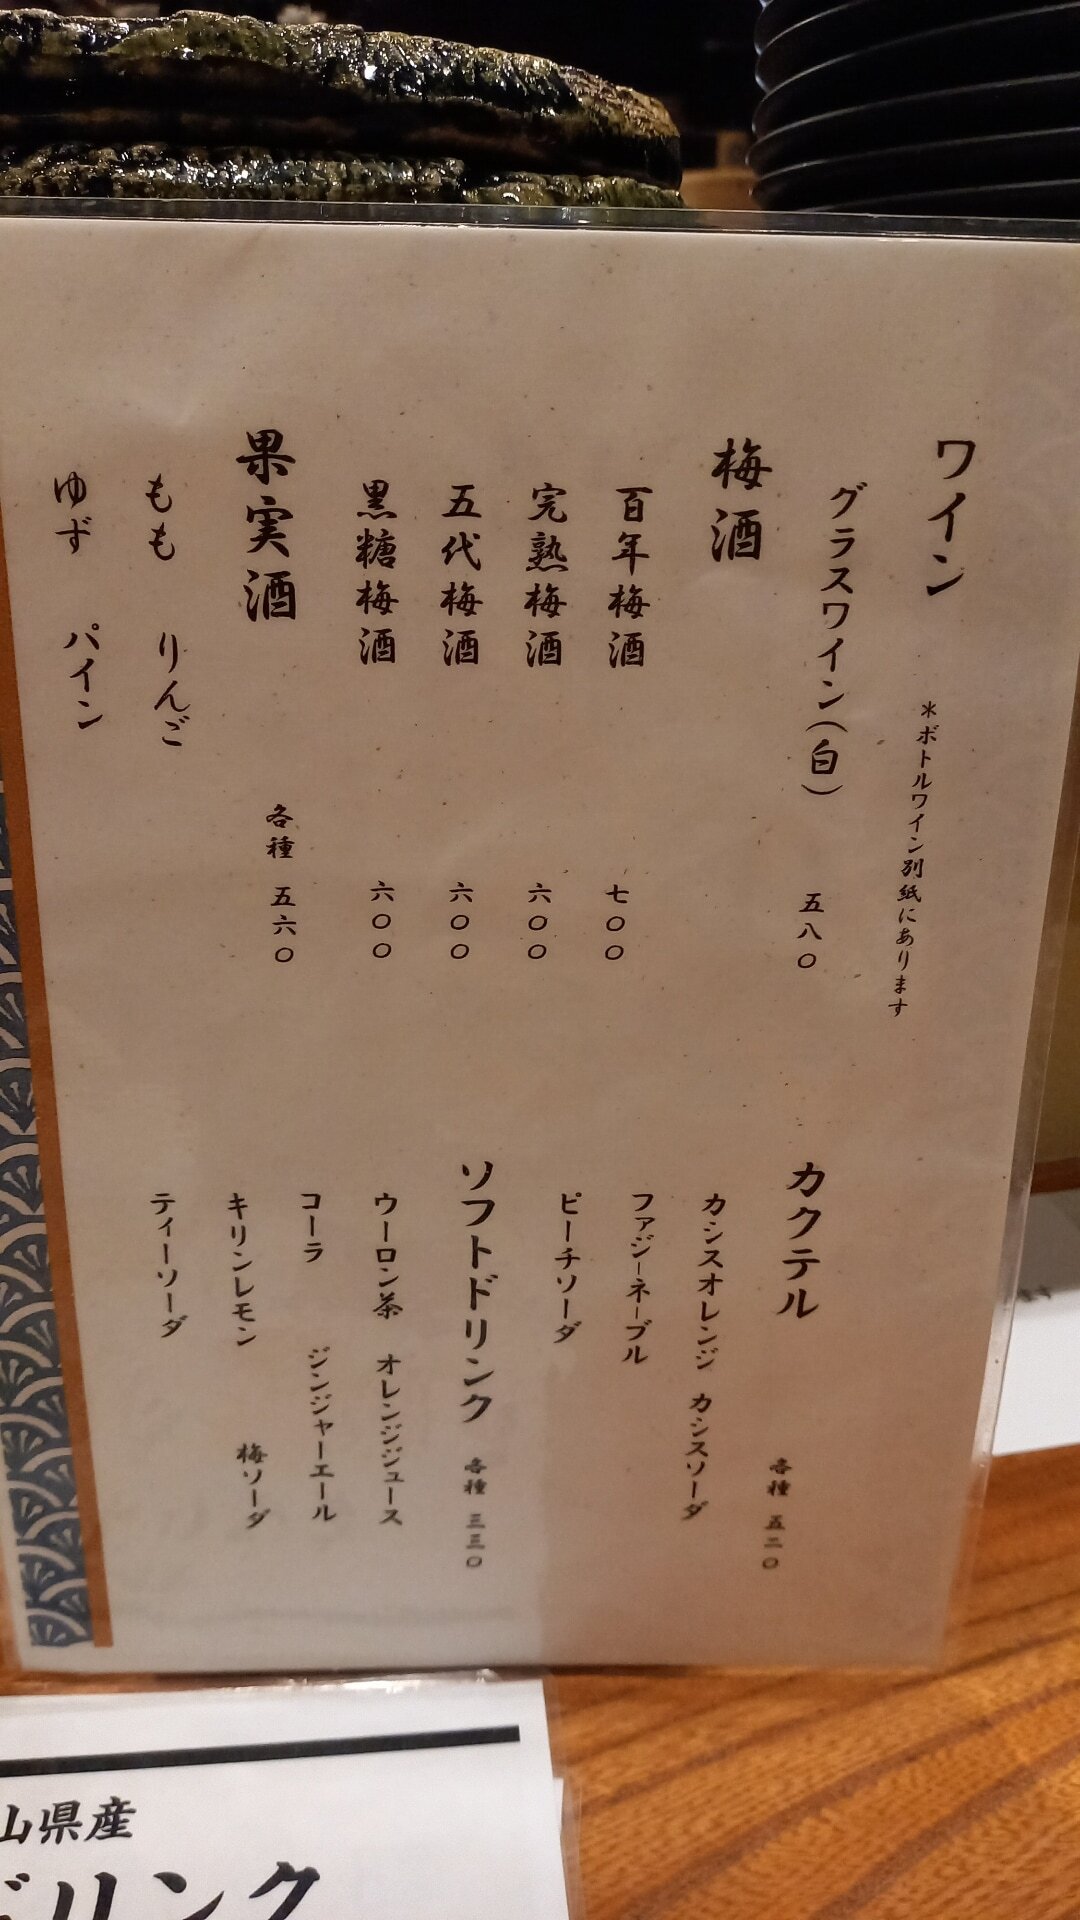 ワイン
＊ボトルワイン別紙にあります
グラスワイン（白） 五八〇
梅酒
百年梅酒 七〇〇
完熟梅酒 六〇〇
五代梅酒 六〇〇
黒糖梅酒 六〇〇
果実酒 各種 五六〇
もも りんご
ゆず パイン
カクテル 各種 五二〇
カシスオレンジ カシスソーダ
ファジーネーブル
ピーチソーダ
ソフトドリンク 各種 三三〇
ウーロン茶 オレンジジュース
コーラ ジンジャーエール
キリンレモン 梅ソーダ
ティーソーダ
山県産
ドリンク